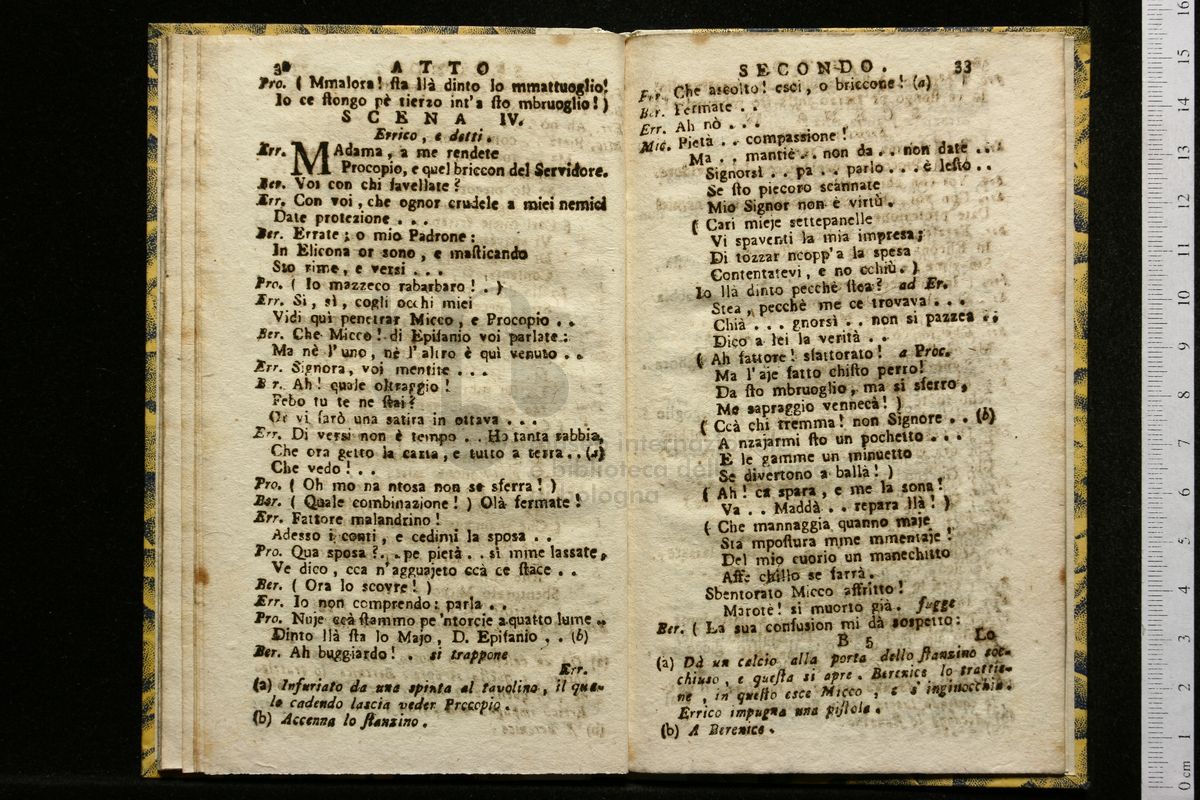 ATTO
Pro. ( Mmalora! sta llà dinto lo mmattuoglio!
Io ce stongo pè tierzo int'a sto mbruoglio! )
SCENA IV.
Errico, e detti.
Err. MAdama, a me rendete
Procopio, e quel briccon del Servidore.
Ber. Voi con chi favellate?
Err. Con voi, che ognor crudele a miei nemici
Date protezione . . .
Ber. Errate; o mio Padrone:
In Elicona or sono, e masticando
Sto rime, e versi . . .
Pro. ( Io mazzeco rabarbaro! . )
Err. Si, sì, cogli occhi miei
Vidi quì penetrar Micco, e Procopio . .
Ber. Che Micco! di Epifanio voi parlate:
Ma nè l'uno, nè l'altro è quì venuto . .
Err. Signora, voi mentite . . .
B r. Ah! quale oltraggio!
Febo tu te ne stai?
Or vi farò una satira in ottava . . .
Err. Di versi non è tempo . . Ho tanta rabbia,
Che ora getto la carta, e tutto a terra . . (a)
Che vedo! . .
Pro. ( Oh mo na ntosa non se sferra! )
Ber. ( Quale combinazione! ) Olà fermate!
Err. Fattore malandrino!
Adesso i conti, e cedimi la sposa . .
Pro. Qua sposa? . . pe pietà . . si mme lassate,
Ve dico, cca n'agguajeto ccà ce stace . .
Ber. ( Ora lo scovre! )
Err. Io non comprendo: parla . .
Pro. Nuje ccà stammo pe 'ntorcie a quatto lume . .
Dinto llà sta lo Majo, D. Epifanio . . (b)
Ber. Ah buggiardo! . si trappone
Err.
(a) Infuriato da una spinta al tavolino, il qua-
le cadendo lascia veder Procopio.
(b) Accenna lo stanzino.
SECONDO. 33
Err. Che ascolto! esci, o briccone! (a)
Ber. Fermate . .
Err. Ah nò . . .
Mic. Pietà . . compassione!
Ma . . mantiè . . non da . . non date . .
Signorsì . . pa . . parlo . . . è lesto . .
Se sto piecoro scannate
Mio Signor non è virtù.
( Cari mieje settepanelle
Vi spaventi la mia impresa;
Di tozzar ncopp'a la spesa
Contentatevi, e no cchiù. )
Io llà dinto pecchè stea? ad Er.
Stea, pecchè me ce trovava . . .
Chià . . . gnorsì . . non si pazzea . .
Dico a lei la verità . .
( Ah fattore! sfattorato! a Proc.
Ma l'aje fatto chisto perro!
Da sto mbruoglio, ma si sferro,
Me sapraggio vennecà! )
( Ccà chi tremma! non Signore . . (b)
A nzajarmi sto un pochetto . . .
E le gamme un minuetto
Se divertono a ballà! )
( Ah! ca spara, e me la sona!
Va . . Maddà . . repara llà! )
( Che mannaggia quanno maje
Sta mpostura mme mmentaje!
Del mio cuorio un manechitto
Affe chillo se farrà.
Sbentorato Micco affritto!
Marotè! si muorto già. fugge
Ber. ( La sua confusion mi dà sospetto:
B 5 Lo
(a) Dà un calcio alla porta dello stanzino soc-
chiuso, e questa si apre. Berenice lo trattie-
ne, in questo esce Micco, e s'inginocchia.
Errico impugna una pistola.
(b) A Berenice.